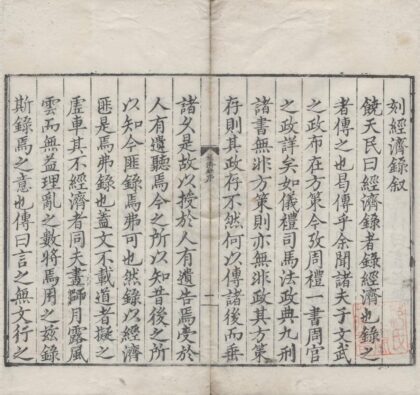 刻經濟錄叙
饒天民曰經濟錄者錄經濟也錄之
者傳之也曷傳乎余聞諸夫子文武
之政布在方策今攷周禮一書周官
之政詳矣如儀禮司馬法政典九刑
諸書無非方策則亦無非政其方策
存則其政存不然何以傳諸後而垂
諸夂是故以授於人有遺告焉受於
人有遺聽焉今之所以知昔後之所
以知今匪錄焉弗可也然錄以經濟
匪是焉弗錄也蓋文不載道者擬之
虛車其不經濟者同夫畫脂月露風
雲而無益理亂之數將焉用之玆錄
斯錄焉之意也傳曰言之無文行之